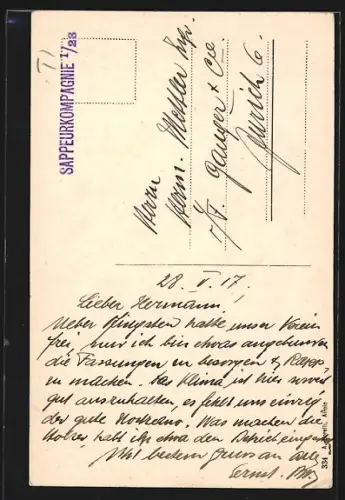 SAPPEURKOMPAGNIE I/23
Herrn
Herm.
Ganger & Cie
Zürich 6.
28. V. 17.
Lieber Hermann!
Ueber Pfingsten hatte unser Verein
frei, nur ich bin etwas angebunden
die Fassungen zu besorgen &
zu machen. Das Klima ist hier soweit
gut auszuhalten, es fehlt uns einzig
der gute Nostrano. Was machen die
habt Ihr etwa den Betrieb
Mit bestem Gruss an alle
Ernst
334